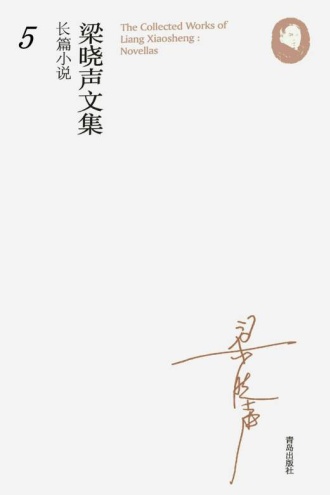 5
梁晓声文集
长篇小说
The Collected Works of
Liang Xiaosheng :
Novellas
梁晓声
青岛出版社